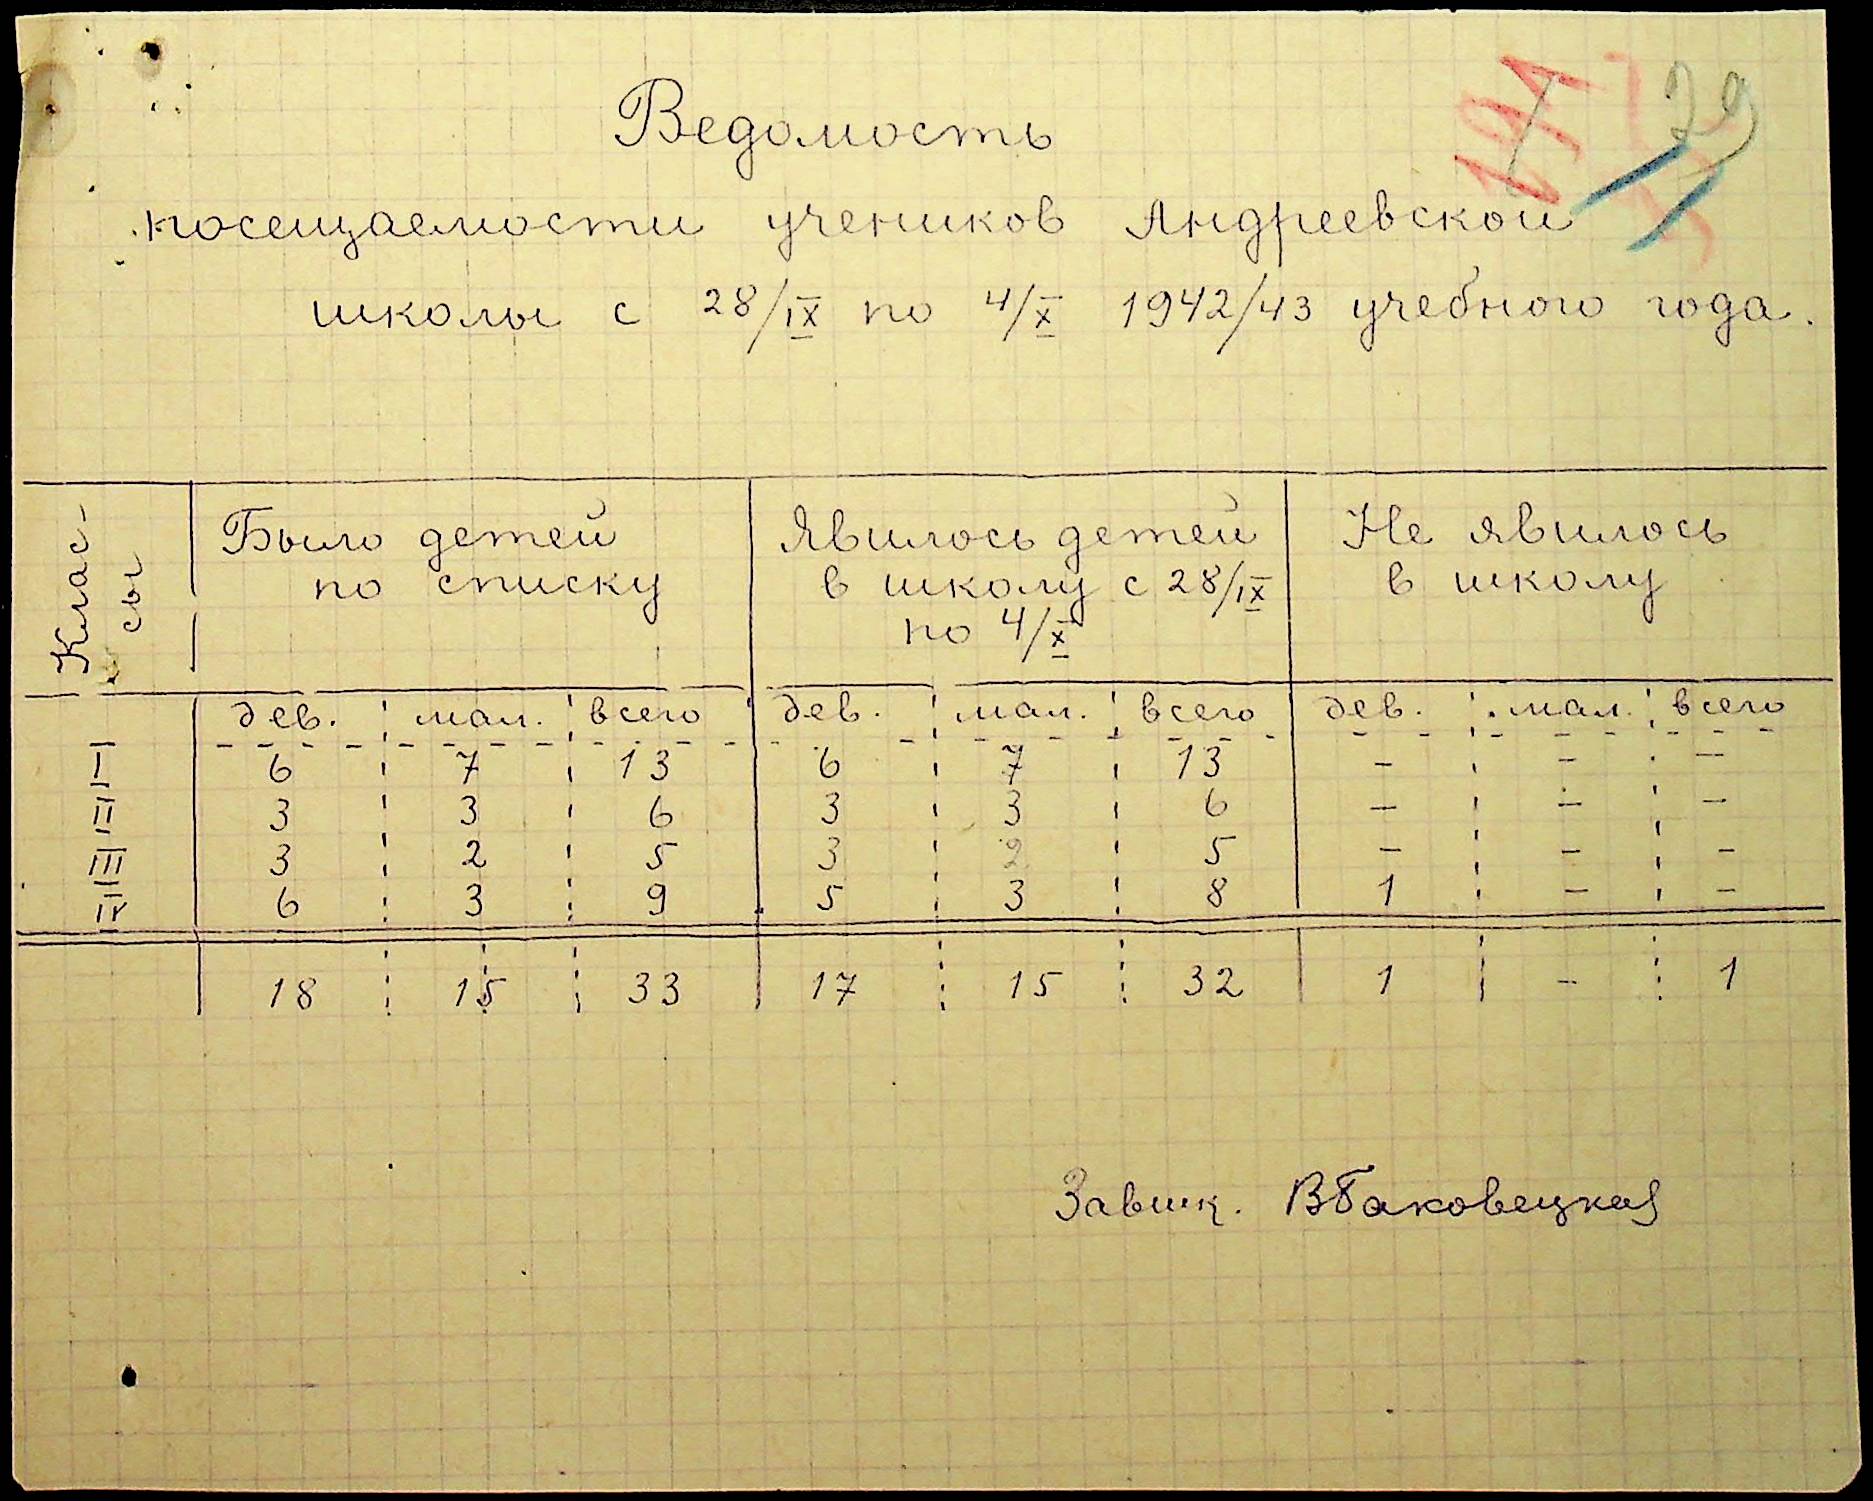 29
Ведомость
посещаемости учеников Андреевской
школы с 28/IX по 4/X 1942/43 учебного года.
Клас-
сы
Было детей
по списку
Явилось детей
в школу с 28/IX
по 4/X
Не явилось
в школу
дев. мал. всего дев. мал. всего дев. мал. всего
I 6 7 13 6 7 13 - - -
II 3 3 6 3 3 6 - - -
III 3 2 5 3 2 5 - - -
IV 6 3 9 5 3 8 1 - -
18 15 33 17 15 32 1 - 1
Завшк. ВБаковецкая